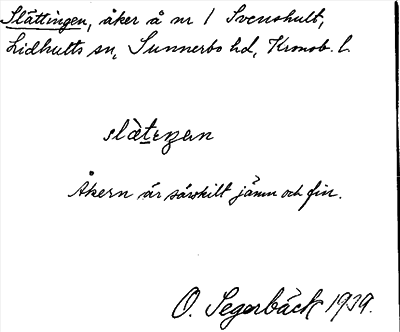 Slättingen, åker å nr 1 Svenshult,
Lidhults sn, Sunnerbo hd, Kronob. l.
slàteŋen
Åkern är särskilt jämn och fin.
O. Segerbäck 1939.